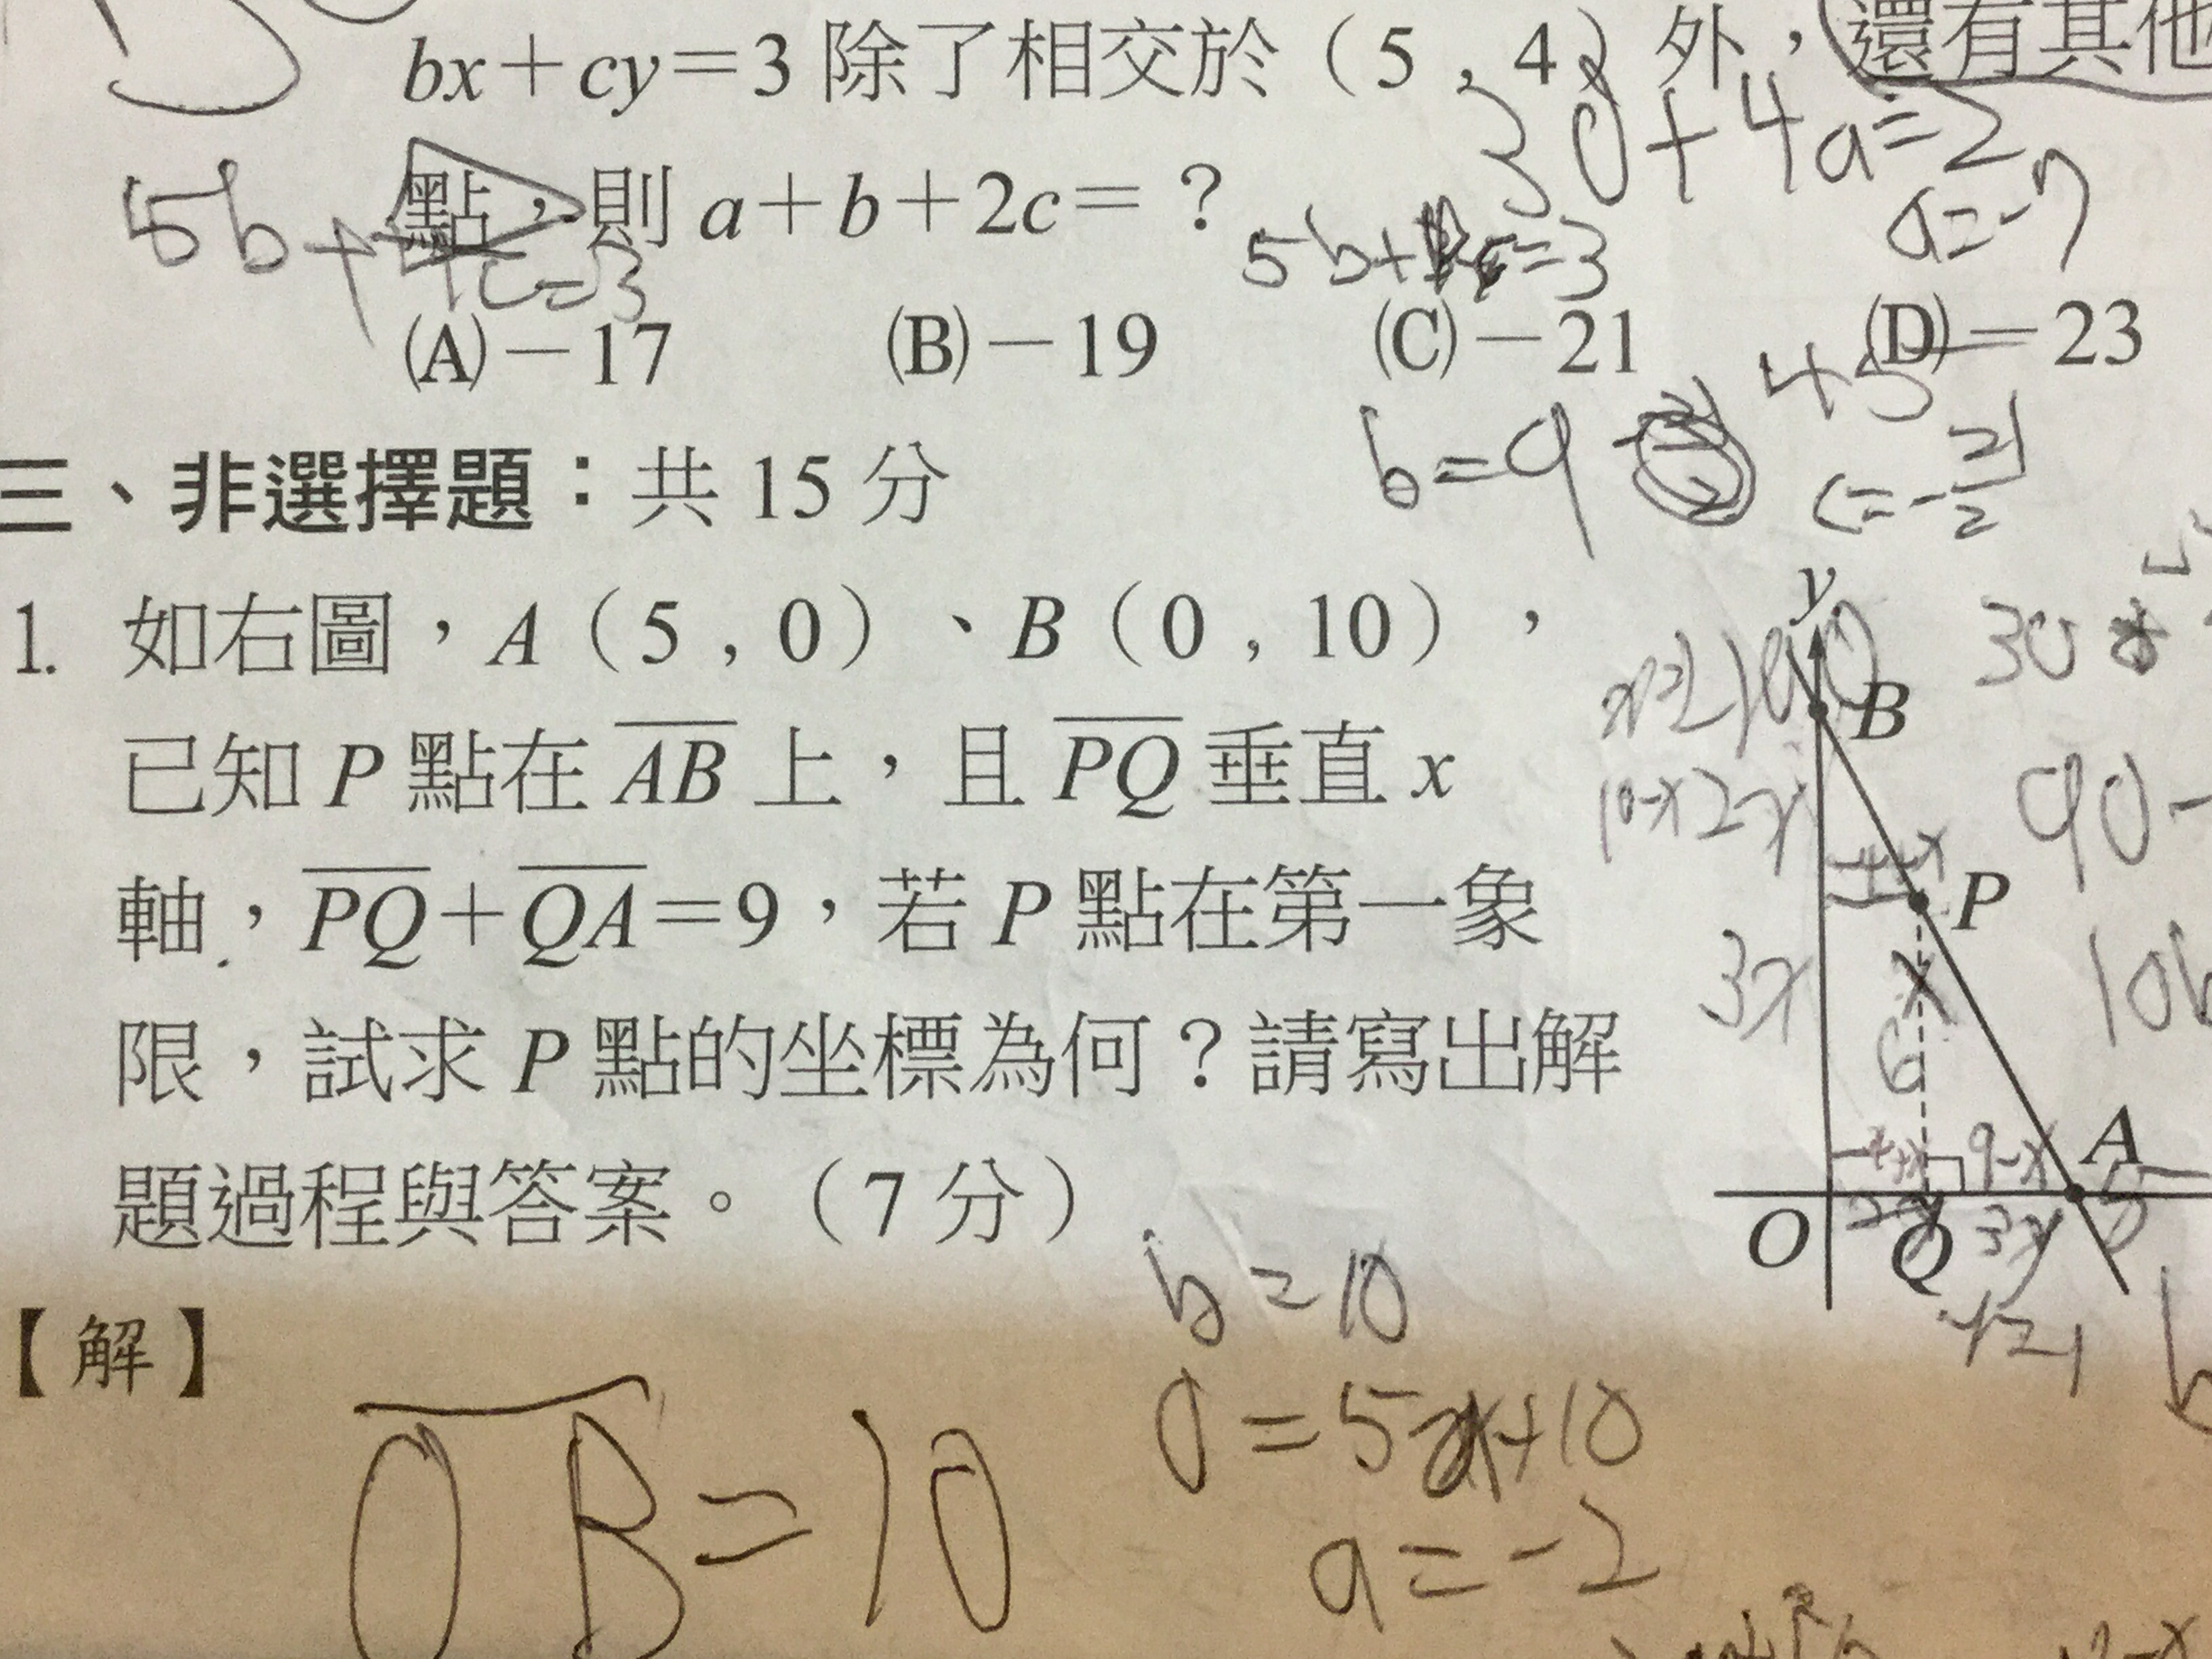 bx+cy=3 除了相交於(5,4)外,還有其他
30+4a=2
5b+4c=3
點,則 a+b+2c=?
a=-7
5b+4c=3
(A)-17 (B)-19 (C)-21 (D)-23
b=9
c=-21/2
三、非選擇題:共 15 分
1. 如右圖,A(5,0)、B(0,10),
已知 P 點在 AB 上,且 PQ 垂直 x
軸,PQ+QA=9,若 P 點在第一象
限,試求 P 點的坐標為何?請寫出解
題過程與答案。(7 分)
y
B
30
90-
P
3x
x
6
9-x
A
O
Q
3x
【解】
OB=10
b=10
0=5a+10
a=-2